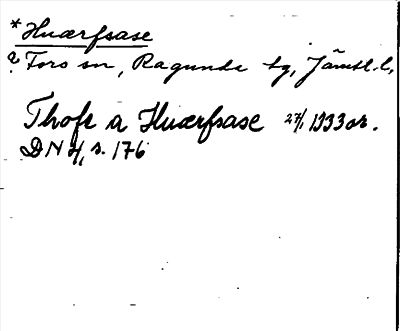 *Huærfsase
? Fors sn, Ragunda tg, Jämtl. l.
Thofe a Huærfsase 27/1 1333 or.
DN 4, s. 176